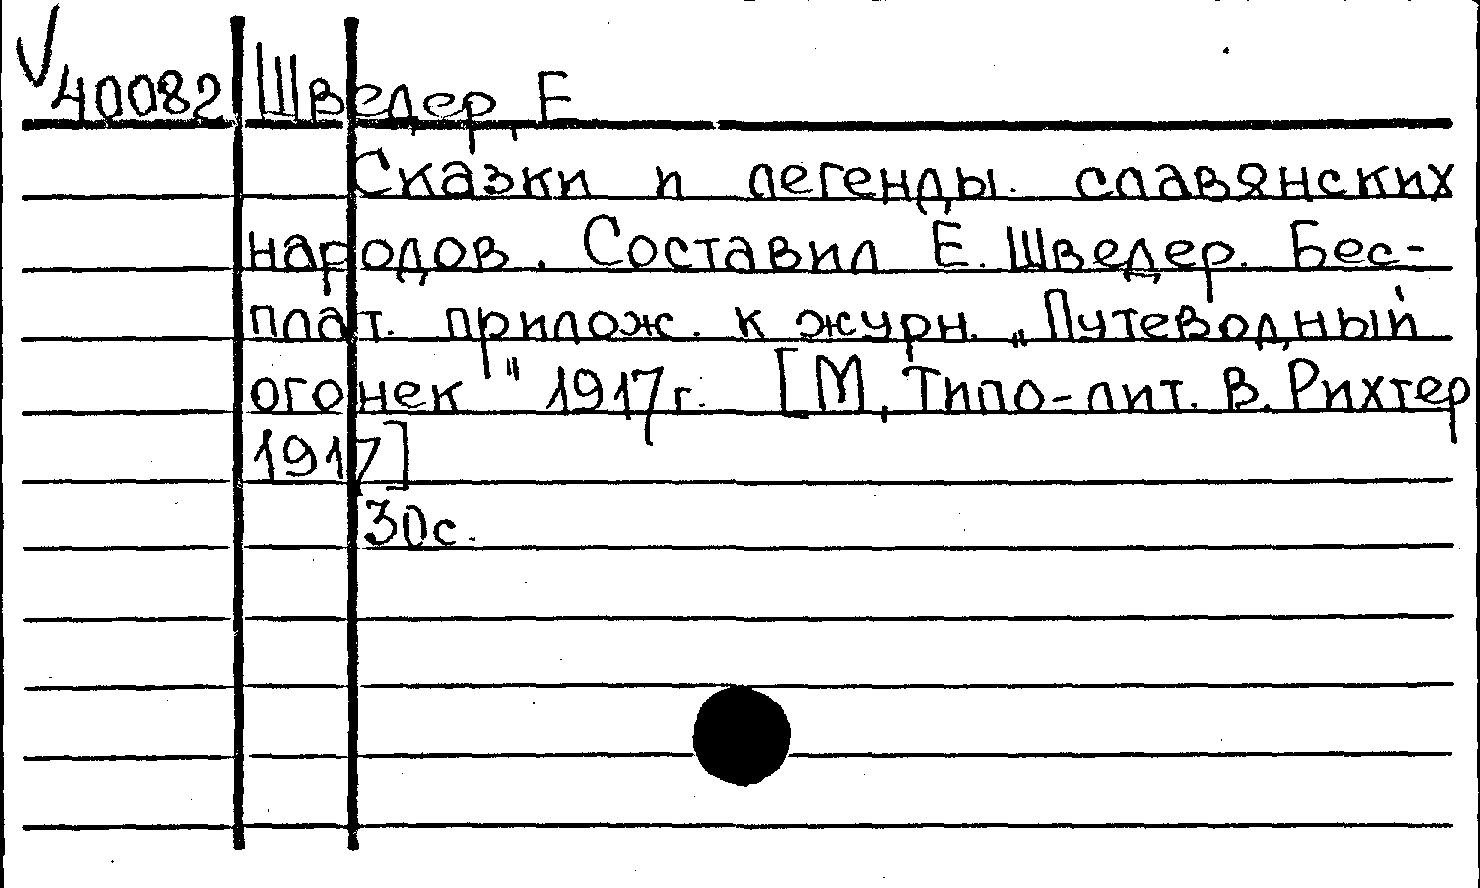 V 40082 Шведер, Е
Сказки и легенды славянских
народов. Составил Е. Шведер. Бес-
плат. прилож. к журн. „Путеводный
огонек" 1917г. [М, Типо-лит. В. Рихтер
1917]
30с.